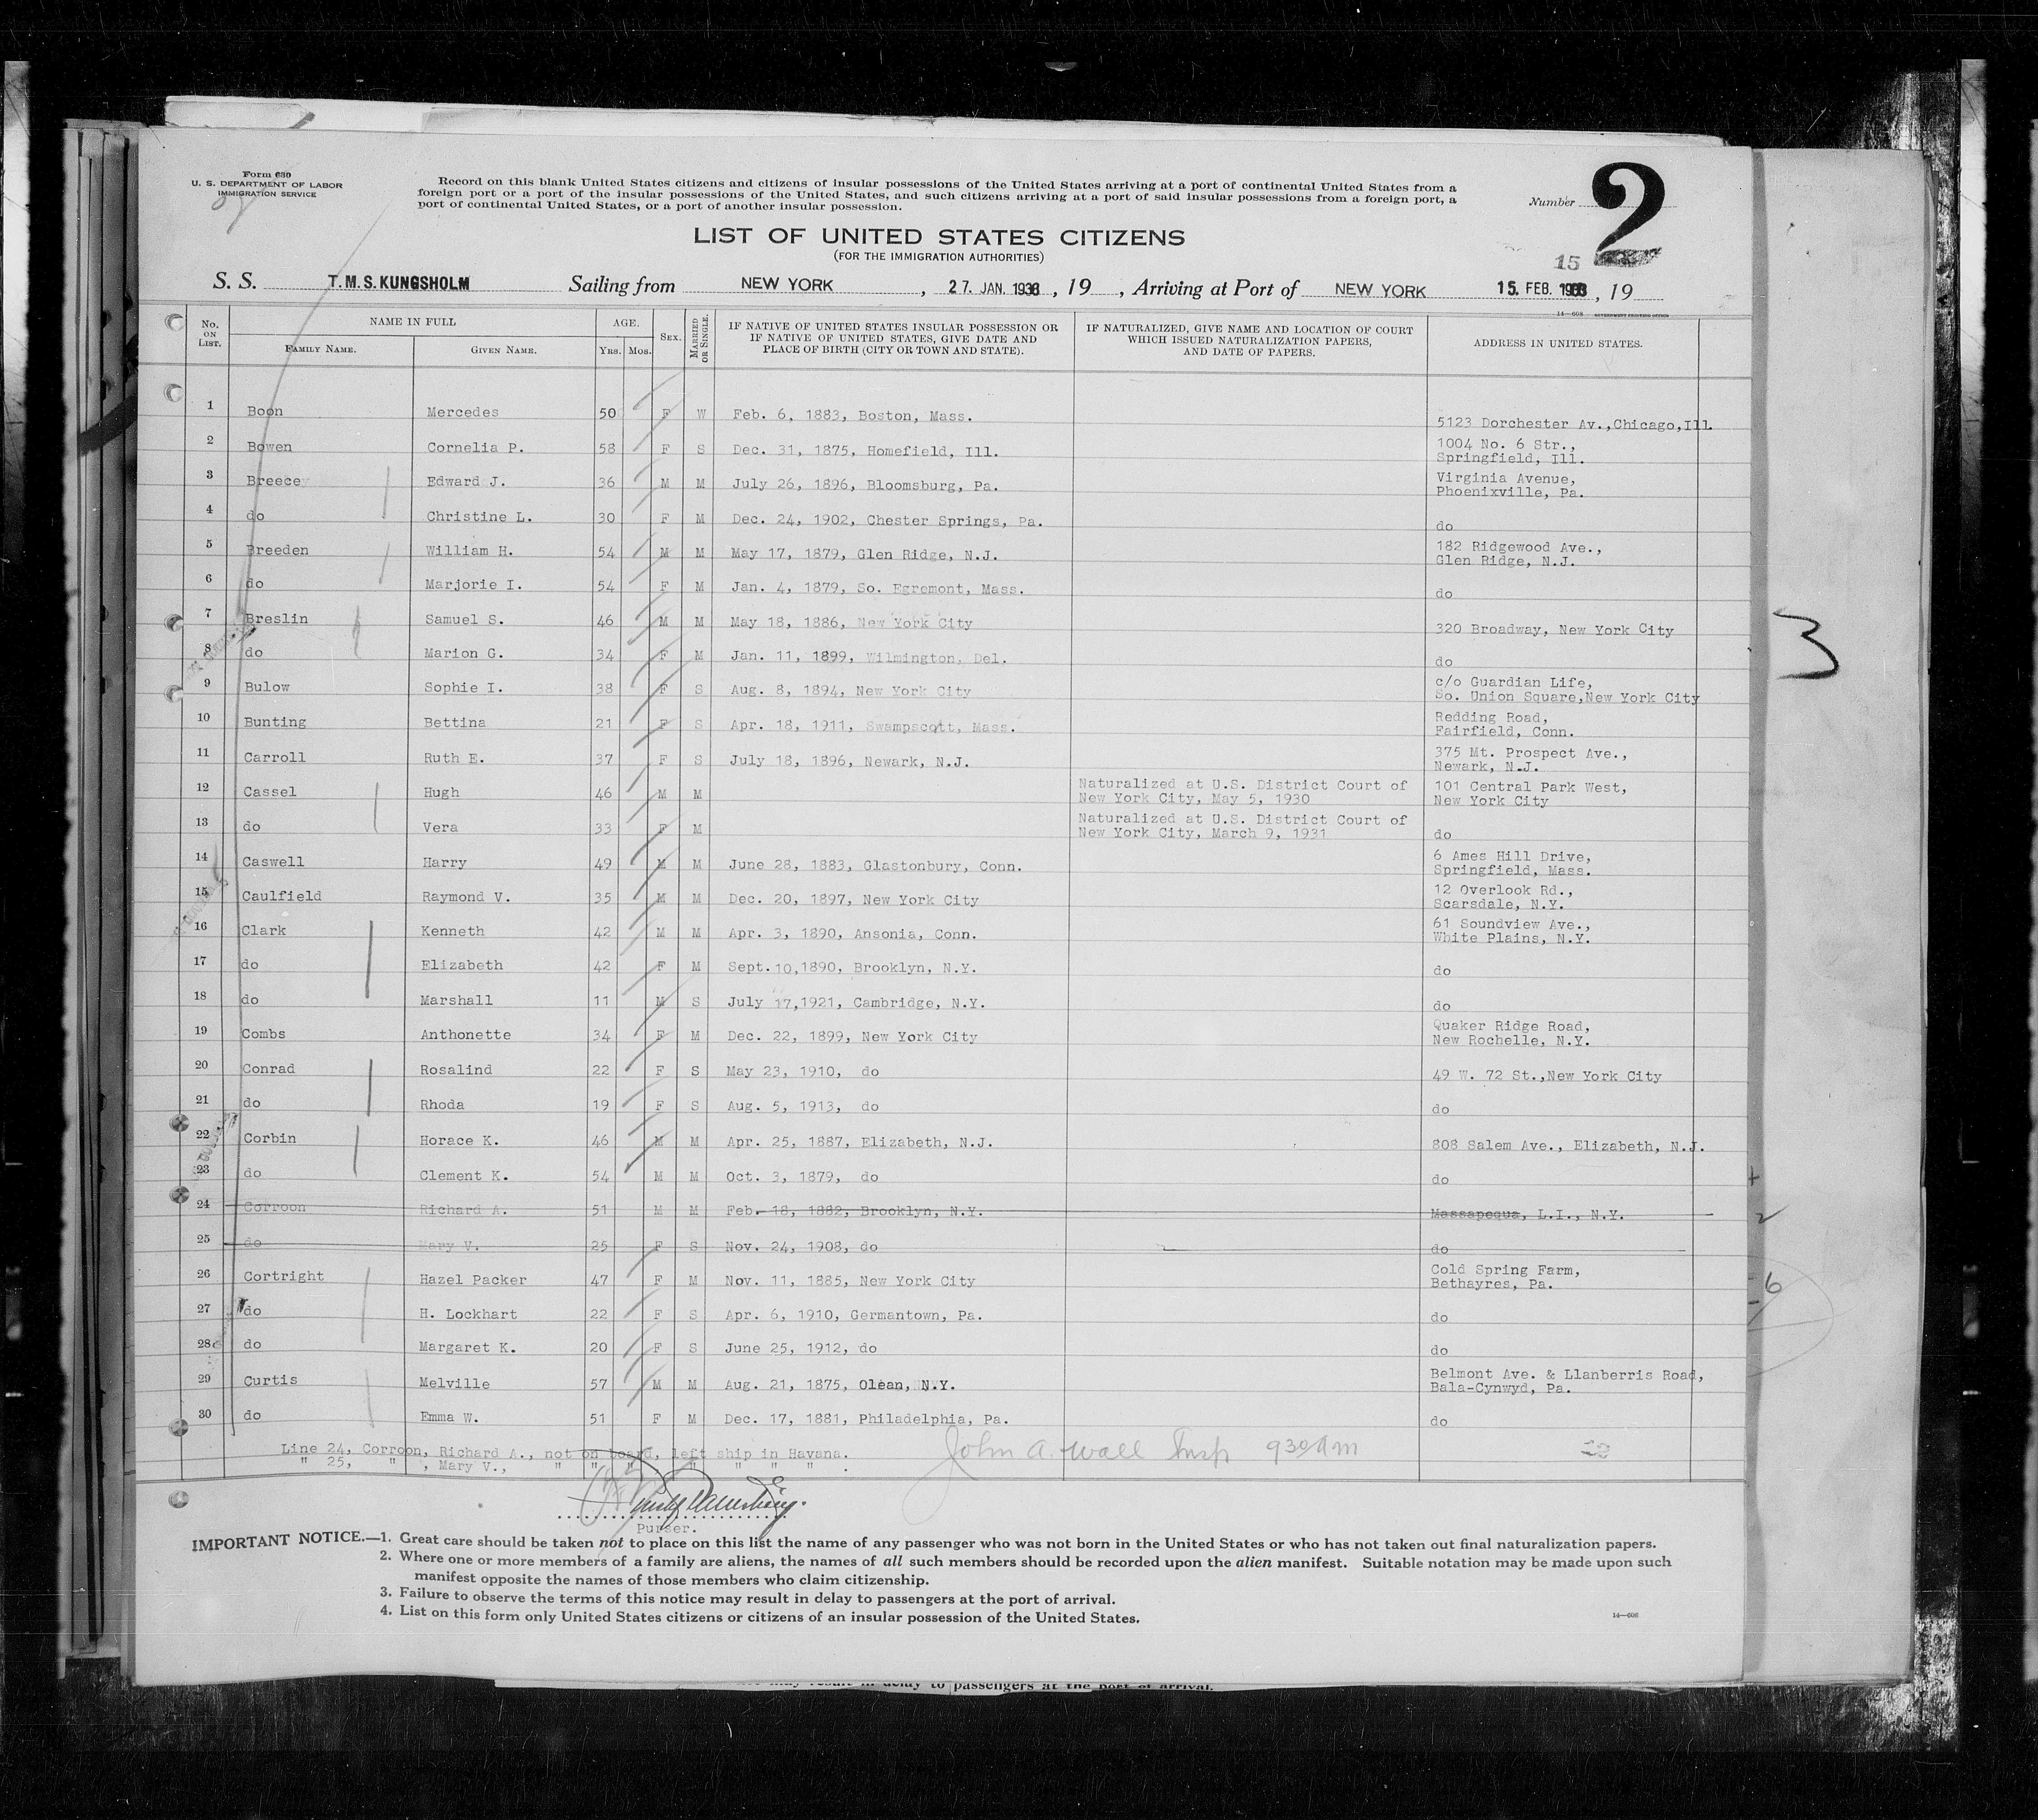 Form 630
U. S. DEPARTMENT OF LABOR
IMMIGRATION SERVICE
Record on this blank United States citizens and citizens of insular possessions of the United States arriving at a port of continental United States from a
foreign port or a port of the insular possessions of the United States, and such citizens arriving at a port of said insular possessions from a foreign port, a
port of continental United States, or a port of another insular possession.
Number 2
LIST OF UNITED STATES CITIZENS
(FOR THE IMMIGRATION AUTHORITIES)
15
S. S. T.M.S. KUNGSHOLM Sailing from NEW YORK, 27. JAN. 1933, 19, Arriving at Port of NEW YORK 15. FEB. 1933, 19
14—608 GOVERNMENT PRINTING OFFICE
No. ON LIST. NAME IN FULL FAMILY NAME. GIVEN NAME. AGE. YRS. MOS. SEX. MARRIED OR SINGLE. IF NATIVE OF UNITED STATES INSULAR POSSESSION OR IF NATIVE OF UNITED STATES, GIVE DATE AND PLACE OF BIRTH (CITY OR TOWN AND STATE). IF NATURALIZED, GIVE NAME AND LOCATION OF COURT WHICH ISSUED NATURALIZATION PAPERS, AND DATE OF PAPERS. ADDRESS IN UNITED STATES.
1 Boon Mercedes 50 F W Feb. 6, 1883, Boston, Mass. 5123 Dorchester Av.,Chicago,Ill.
2 Bowen Cornelia P. 58 F S Dec. 31, 1875, Homefield, Ill. 1004 No. 6 Str., Springfield, Ill.
3 Breece Edward J. 36 M M July 26, 1896, Bloomsburg, Pa. Virginia Avenue, Phoenixville, Pa.
4 do Christine L. 30 F M Dec. 24, 1902, Chester Springs, Pa. do
5 Breeden William H. 54 M M May 17, 1879, Glen Ridge, N.J. 182 Ridgewood Ave., Glen Ridge, N.J.
6 do Marjorie I. 54 F M Jan. 4, 1879, So. Egremont, Mass. do
7 Breslin Samuel S. 46 M M May 18, 1886, New York City 320 Broadway, New York City
8 do Marion G. 34 F M Jan. 11, 1899, Wilmington, Del. do
9 Bulow Sophie I. 38 F S Aug. 8, 1894, New York City c/o Guardian Life, So. Union Square,New York City
10 Bunting Bettina 21 F S Apr. 18, 1911, Swampscott, Mass. Redding Road, Fairfield, Conn.
11 Carroll Ruth E. 37 F S July 18, 1896, Newark, N.J. 375 Mt. Prospect Ave., Newark, N.J.
12 Cassel Hugh 46 M M Naturalized at U.S. District Court of New York City, May 5, 1930 101 Central Park West, New York City
13 do Vera 33 F M Naturalized at U.S. District Court of New York City, March 9, 1931 do
14 Caswell Harry 49 M M June 28, 1883, Glastonbury, Conn. 6 Ames Hill Drive, Springfield, Mass.
15 Caulfield Raymond V. 35 M M Dec. 20, 1897, New York City 12 Overlook Rd., Scarsdale, N.Y.
16 Clark Kenneth 42 M M Apr. 3, 1890, Ansonia, Conn. 61 Soundview Ave., White Plains, N.Y.
17 do Elizabeth 42 F M Sept.10,1890, Brooklyn, N.Y. do
18 do Marshall 11 M S July 17,1921, Cambridge, N.Y. do
19 Combs Anthonette 34 F M Dec. 22, 1899, New York City Quaker Ridge Road, New Rochelle, N.Y.
20 Conrad Rosalind 22 F S May 23, 1910, do 49 W. 72 St.,New York City
21 do Rhoda 19 F S Aug. 5, 1913, do do
22 Corbin Horace K. 46 M M Apr. 25, 1887, Elizabeth, N.J. 808 Salem Ave., Elizabeth, N.J.
23 do Clement K. 54 M M Oct. 3, 1879, do do
24 Corroon Richard A. 51 M M Feb. 18, 1882, Brooklyn, N.Y. Massapequa, L.I., N.Y.
25 do Mary V. 25 F S Nov. 24, 1908, do do
26 Cortright Hazel Packer 47 F M Nov. 11, 1885, New York City Cold Spring Farm, Bethayres, Pa.
27 do H. Lockhart 22 F S Apr. 6, 1910, Germantown, Pa. do
28 do Margaret K. 20 F S June 25, 1912, do do
29 Curtis Melville 57 M M Aug. 21, 1875, Olean, N.Y. Belmont Ave. & Llanberris Road, Bala-Cynwyd, Pa.
30 do Emma W. 51 F M Dec. 17, 1881, Philadelphia, Pa. do
3
6
Line 24, Corroon, Richard A., not on board, left ship in Havana.
" 25, " , Mary V., " " " " " " " .
John A. Wall Insp 930AM
Purser.
IMPORTANT NOTICE.—1. Great care should be taken not to place on this list the name of any passenger who was not born in the United States or who has not taken out final naturalization papers.
2. Where one or more members of a family are aliens, the names of all such members should be recorded upon the alien manifest. Suitable notation may be made upon such
manifest opposite the names of those members who claim citizenship.
3. Failure to observe the terms of this notice may result in delay to passengers at the port of arrival.
4. List on this form only United States citizens or citizens of an insular possession of the United States.
14—608
may result in delay to passengers at the port of arrival.